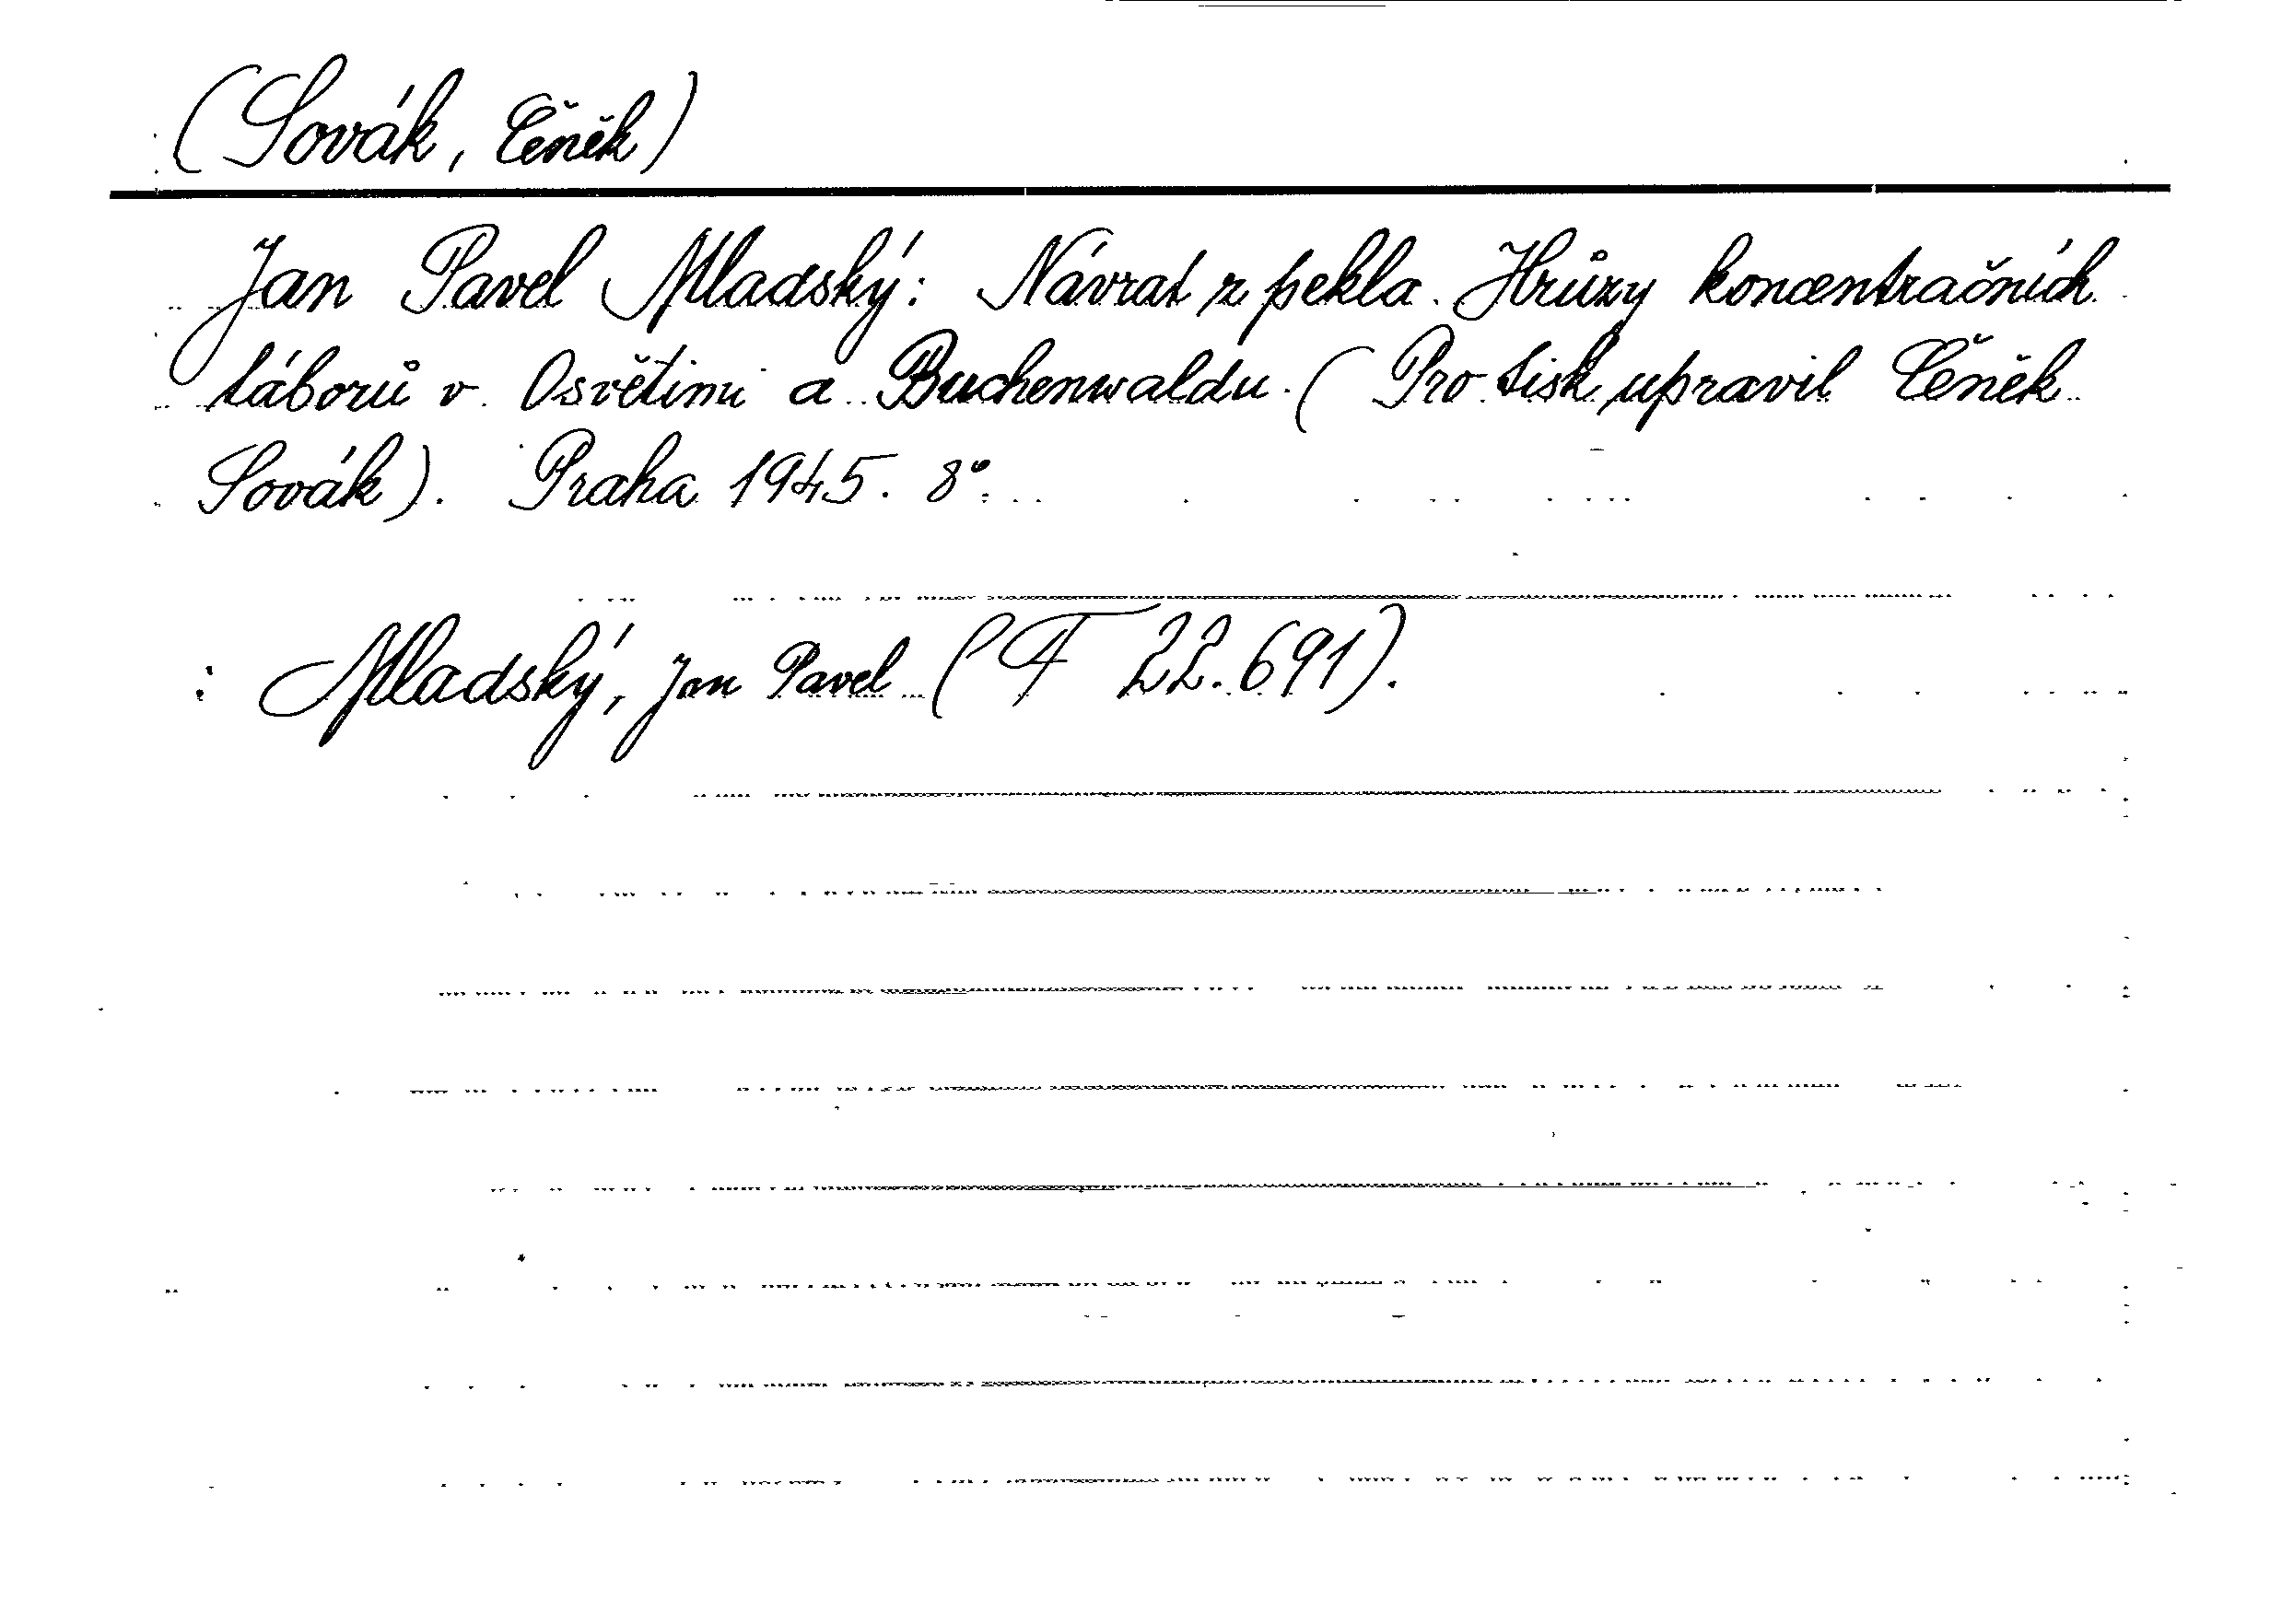 (Sovák, Čeněk)
Jan Pavel Mladský: Návrat z pekla. Hrůzy koncentračních
táborů v Osvětimi a Buchenwaldu. (Pro tisk upravil Čeněk
Sovák). Praha 1945. 8°.
: Mladský, Jan Pavel (F 22.691).